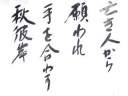 亡き人から
願われ
手を合わす
秋彼岸